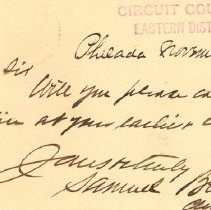 CIRCUIT COU
EASTERN DIST
Philada Novem
Sir
Will you please ca
at your earliest c
Yours truly
Samuel B